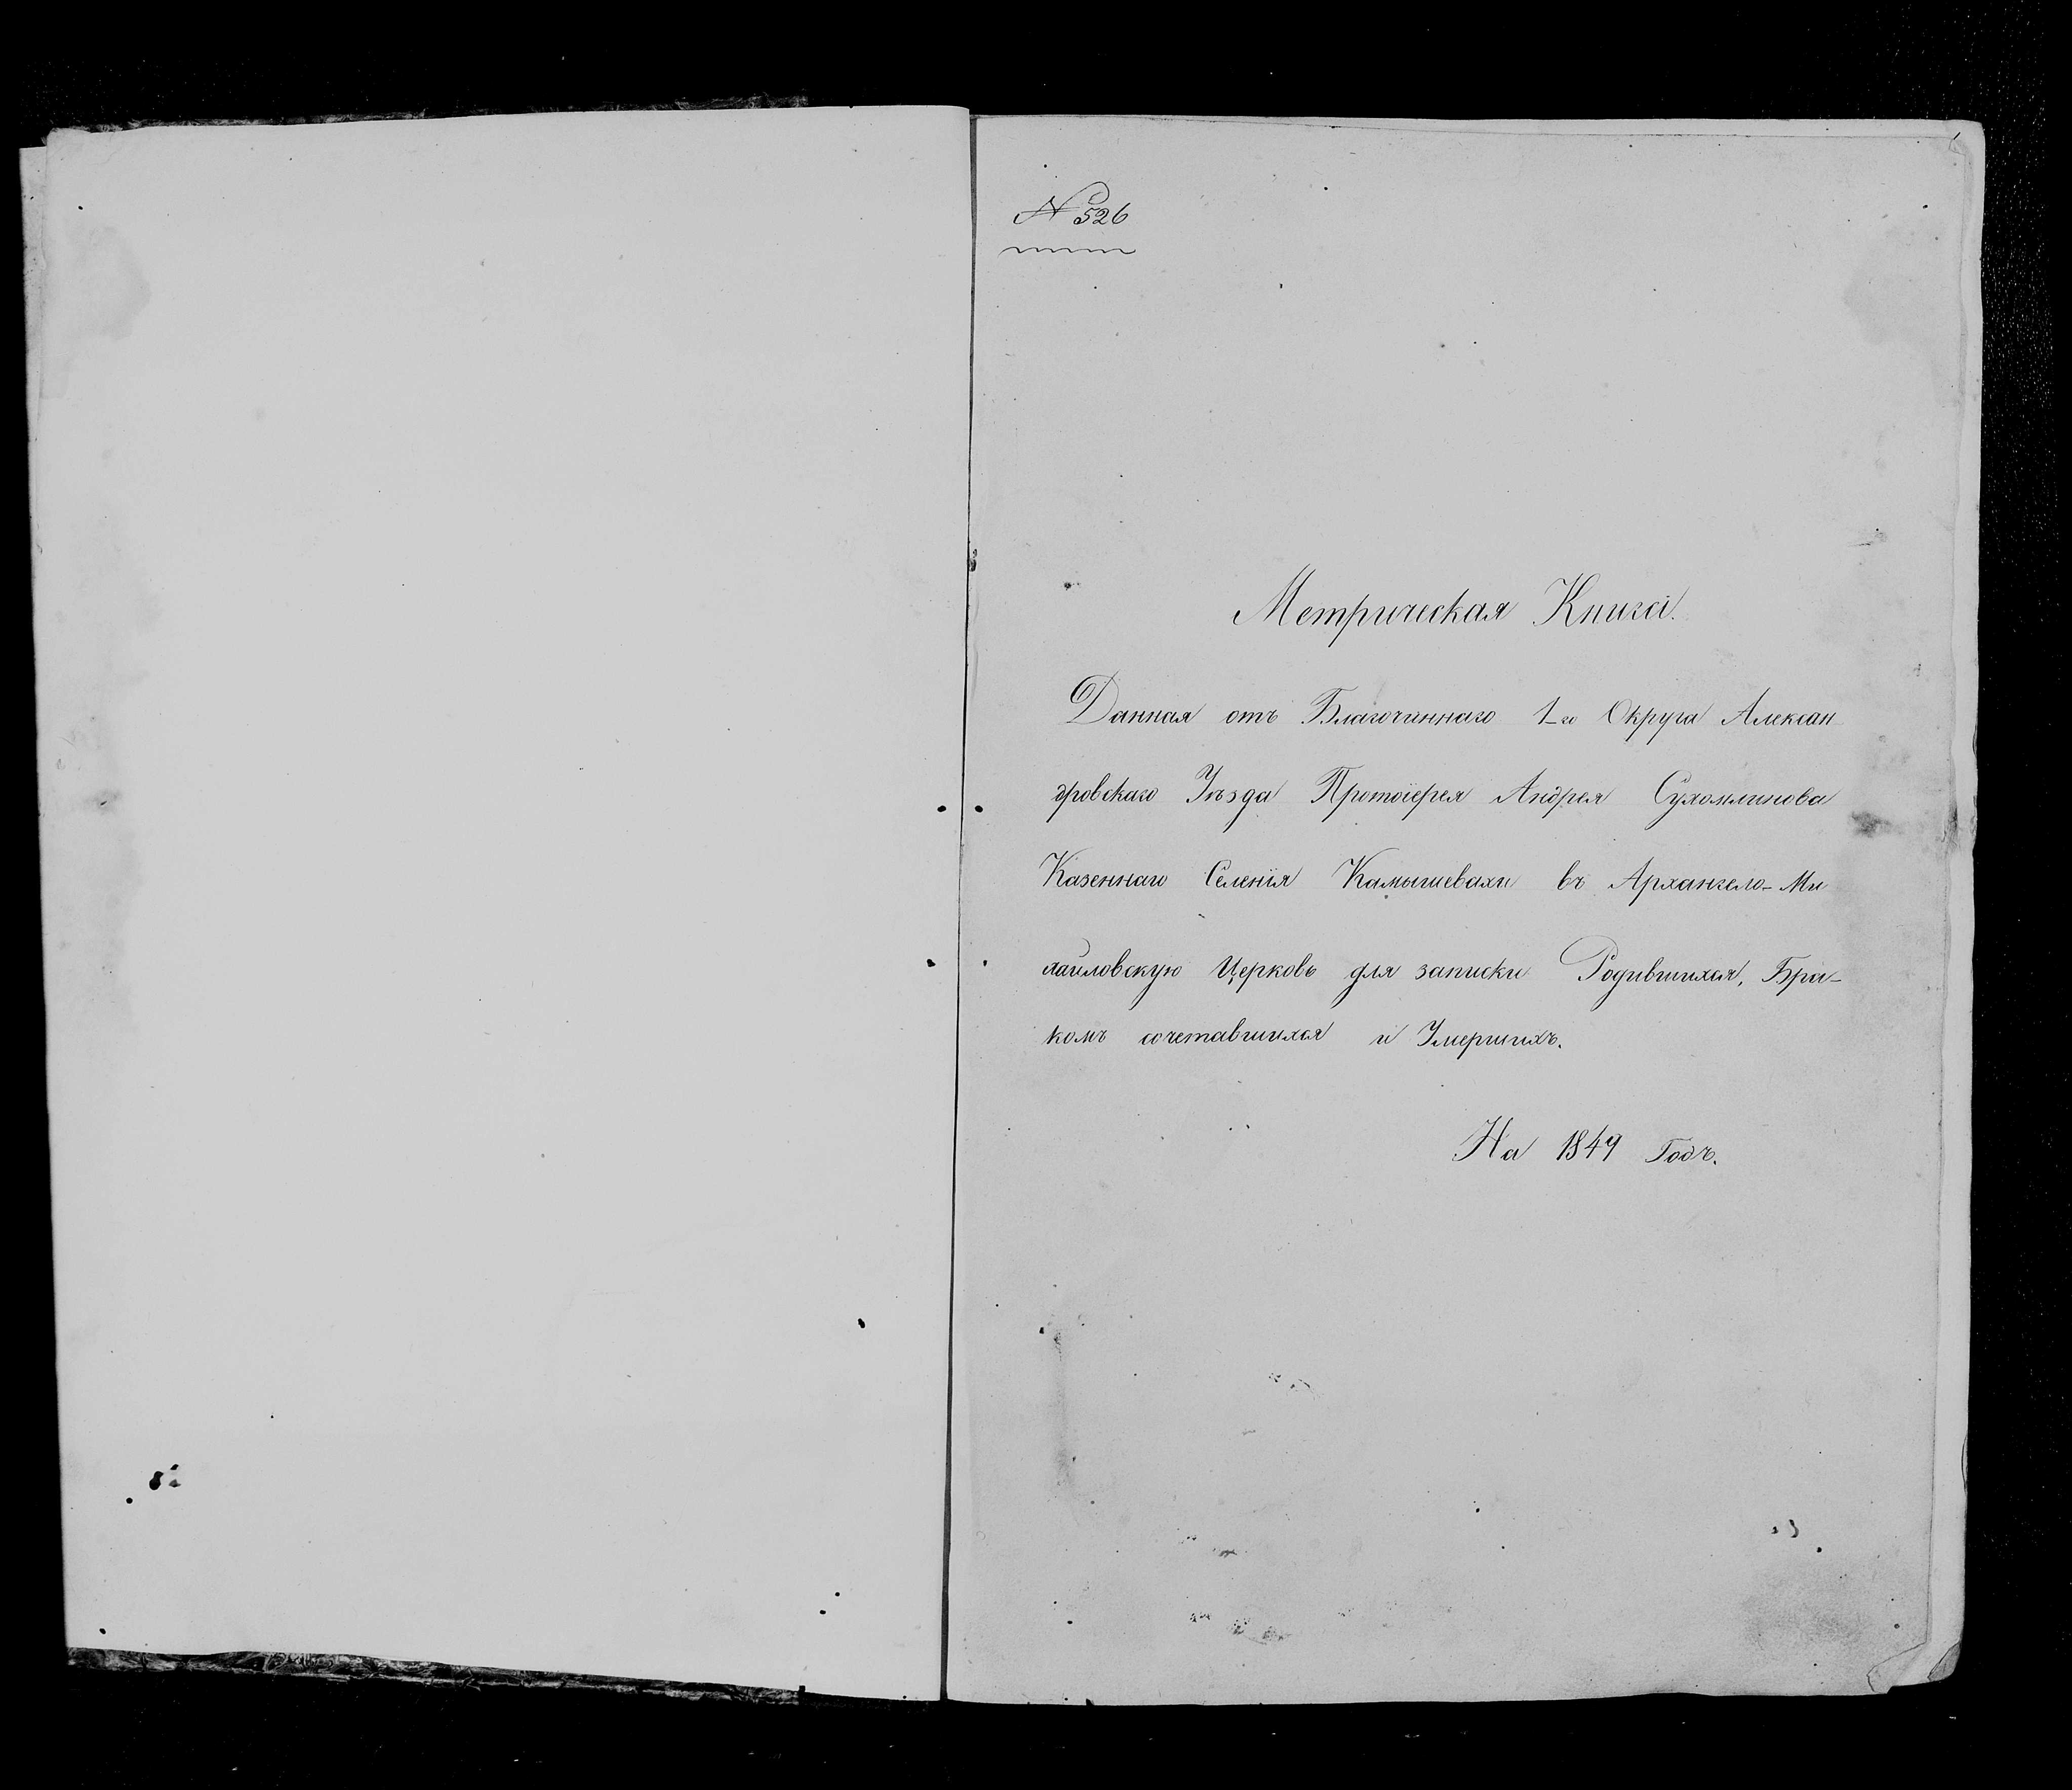 № 526
Метрическая Книга.
Данная отъ Благочиннаго 1-го Округа Алексан
дровскаго Уѣзда Протоіерея Андрея Сухомлинова
Казеннаго Селенія Камышевахи въ Архангело-Ми
хайловскую Церковь для записки Родившихся, Бра-
комъ сочетавшихся и Умершихъ.
На 1849 Годъ.